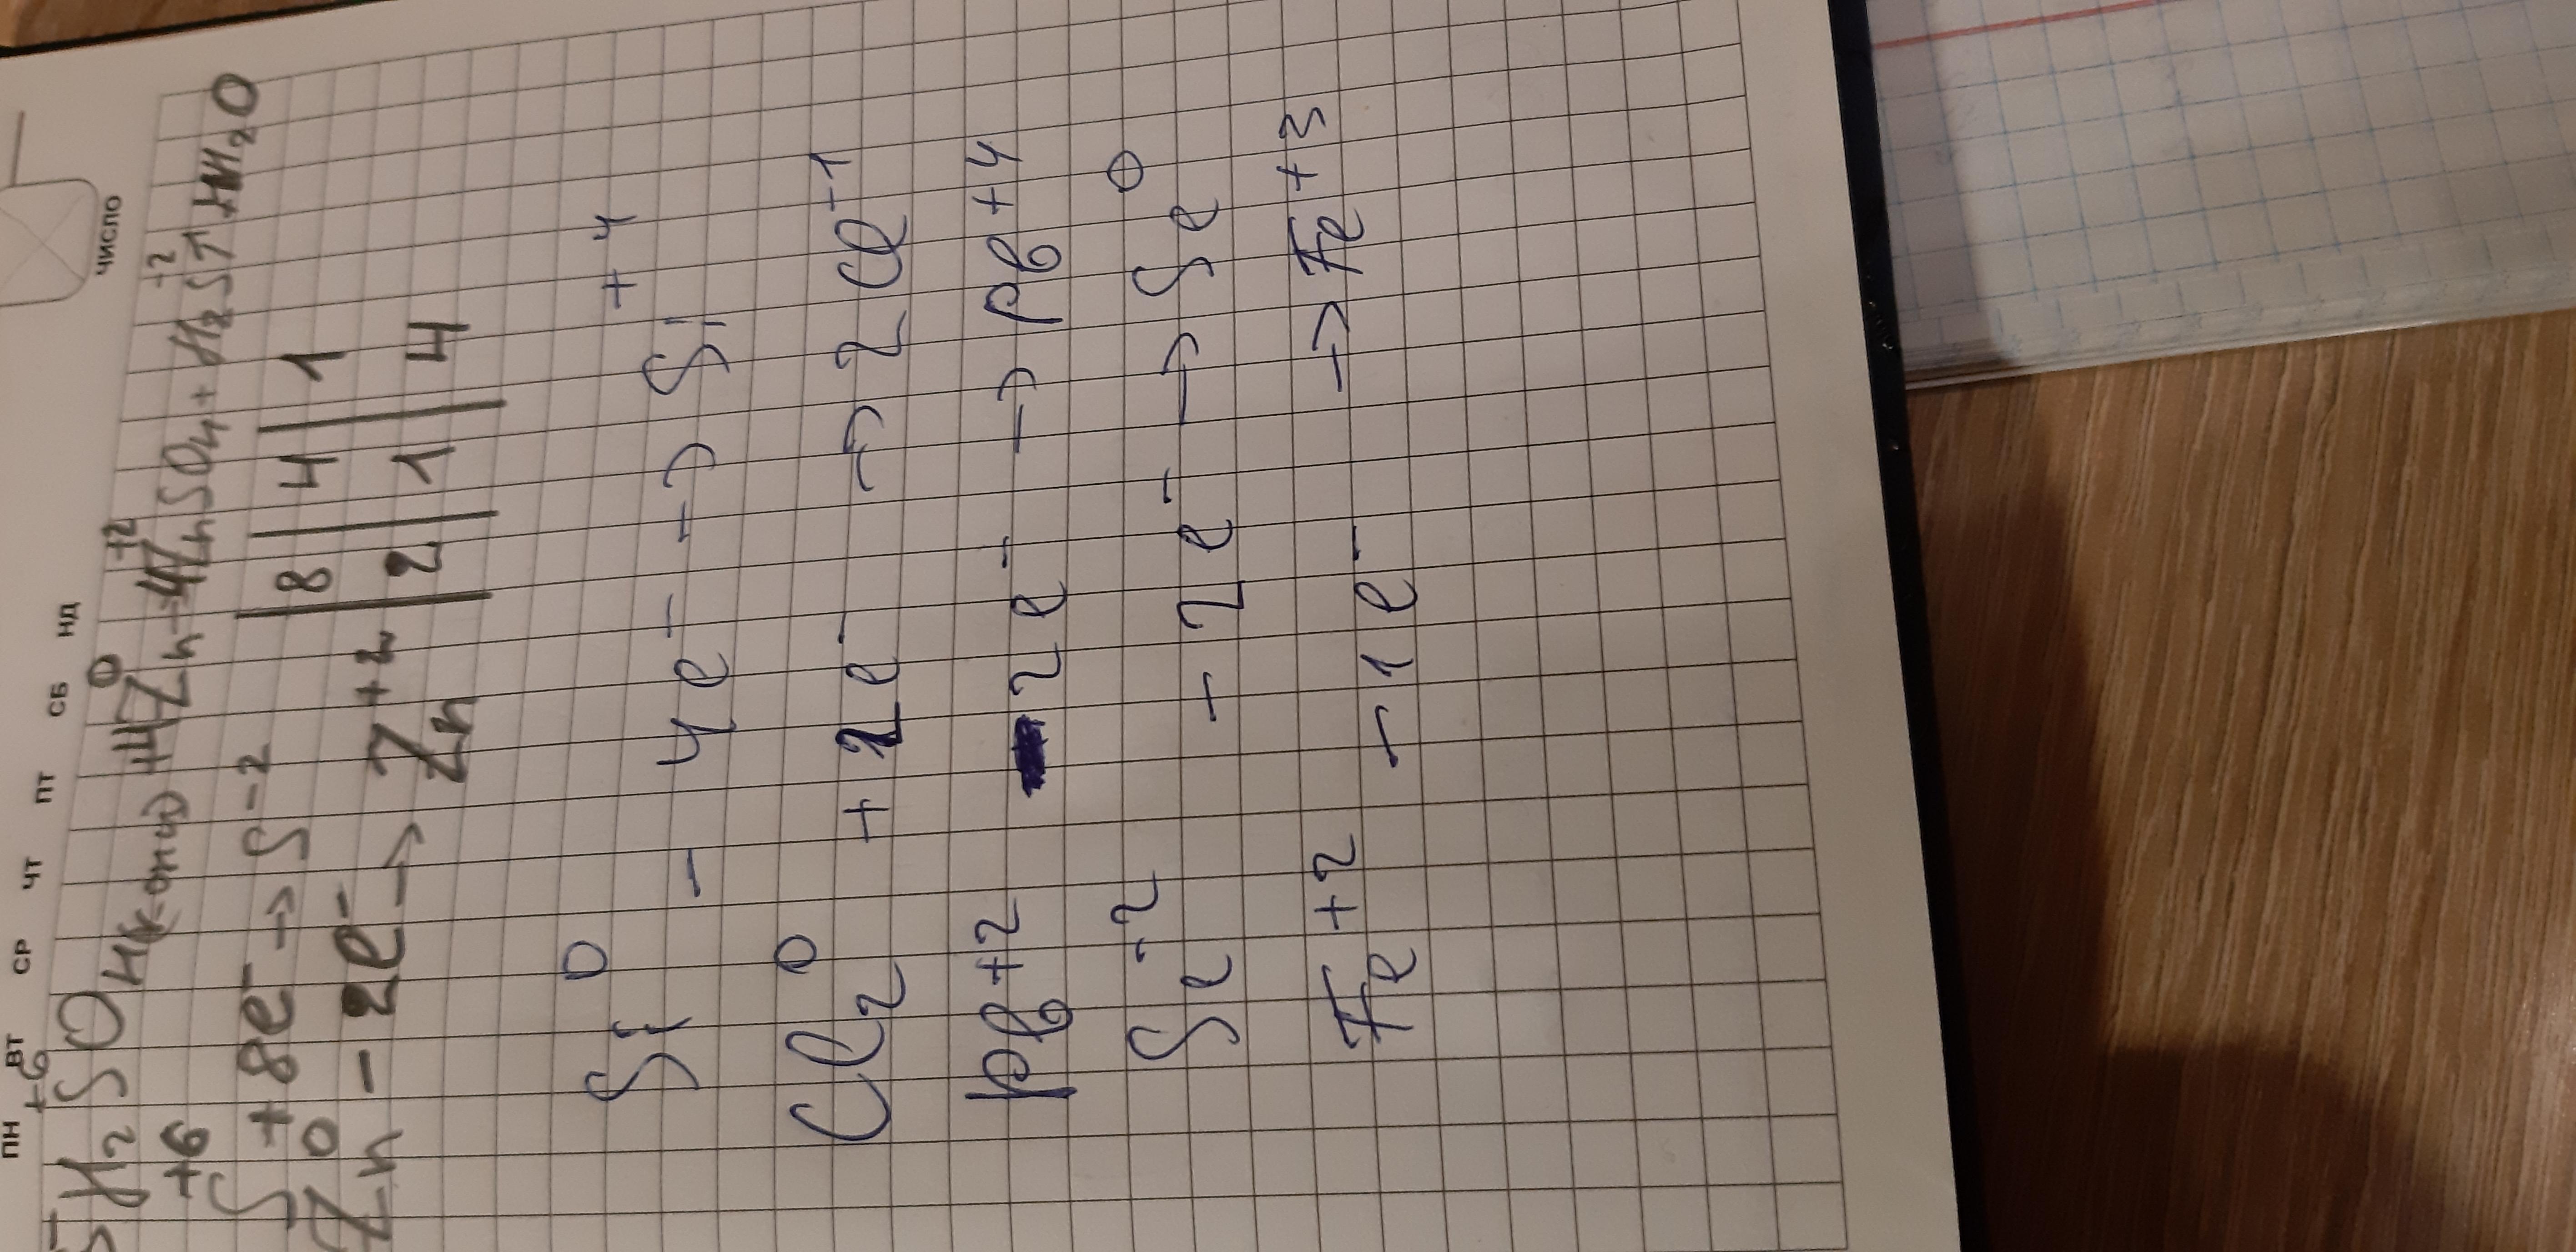 ПН ВТ СР ЧТ ПТ СБ НД
ЧИСЛО
+6 0 +2 -2
5H₂SO₄(конц)+4Zn→4ZnSO₄+H₂S↑+4H₂O
S⁺⁶ +8e⁻→S⁻² | 8 | 4 | 1
Zn⁰ -2e⁻→Zn⁺² | 2 | 1 | 4
Si⁰ - 4e⁻ → Si⁺⁴
Cl₂⁰ + 2e⁻ → 2Cl⁻¹
Pb⁺² 2e⁻ → Pb⁺⁴
Se⁻² - 2e⁻ → Se⁰
Fe⁺² - 1e⁻ → Fe⁺³